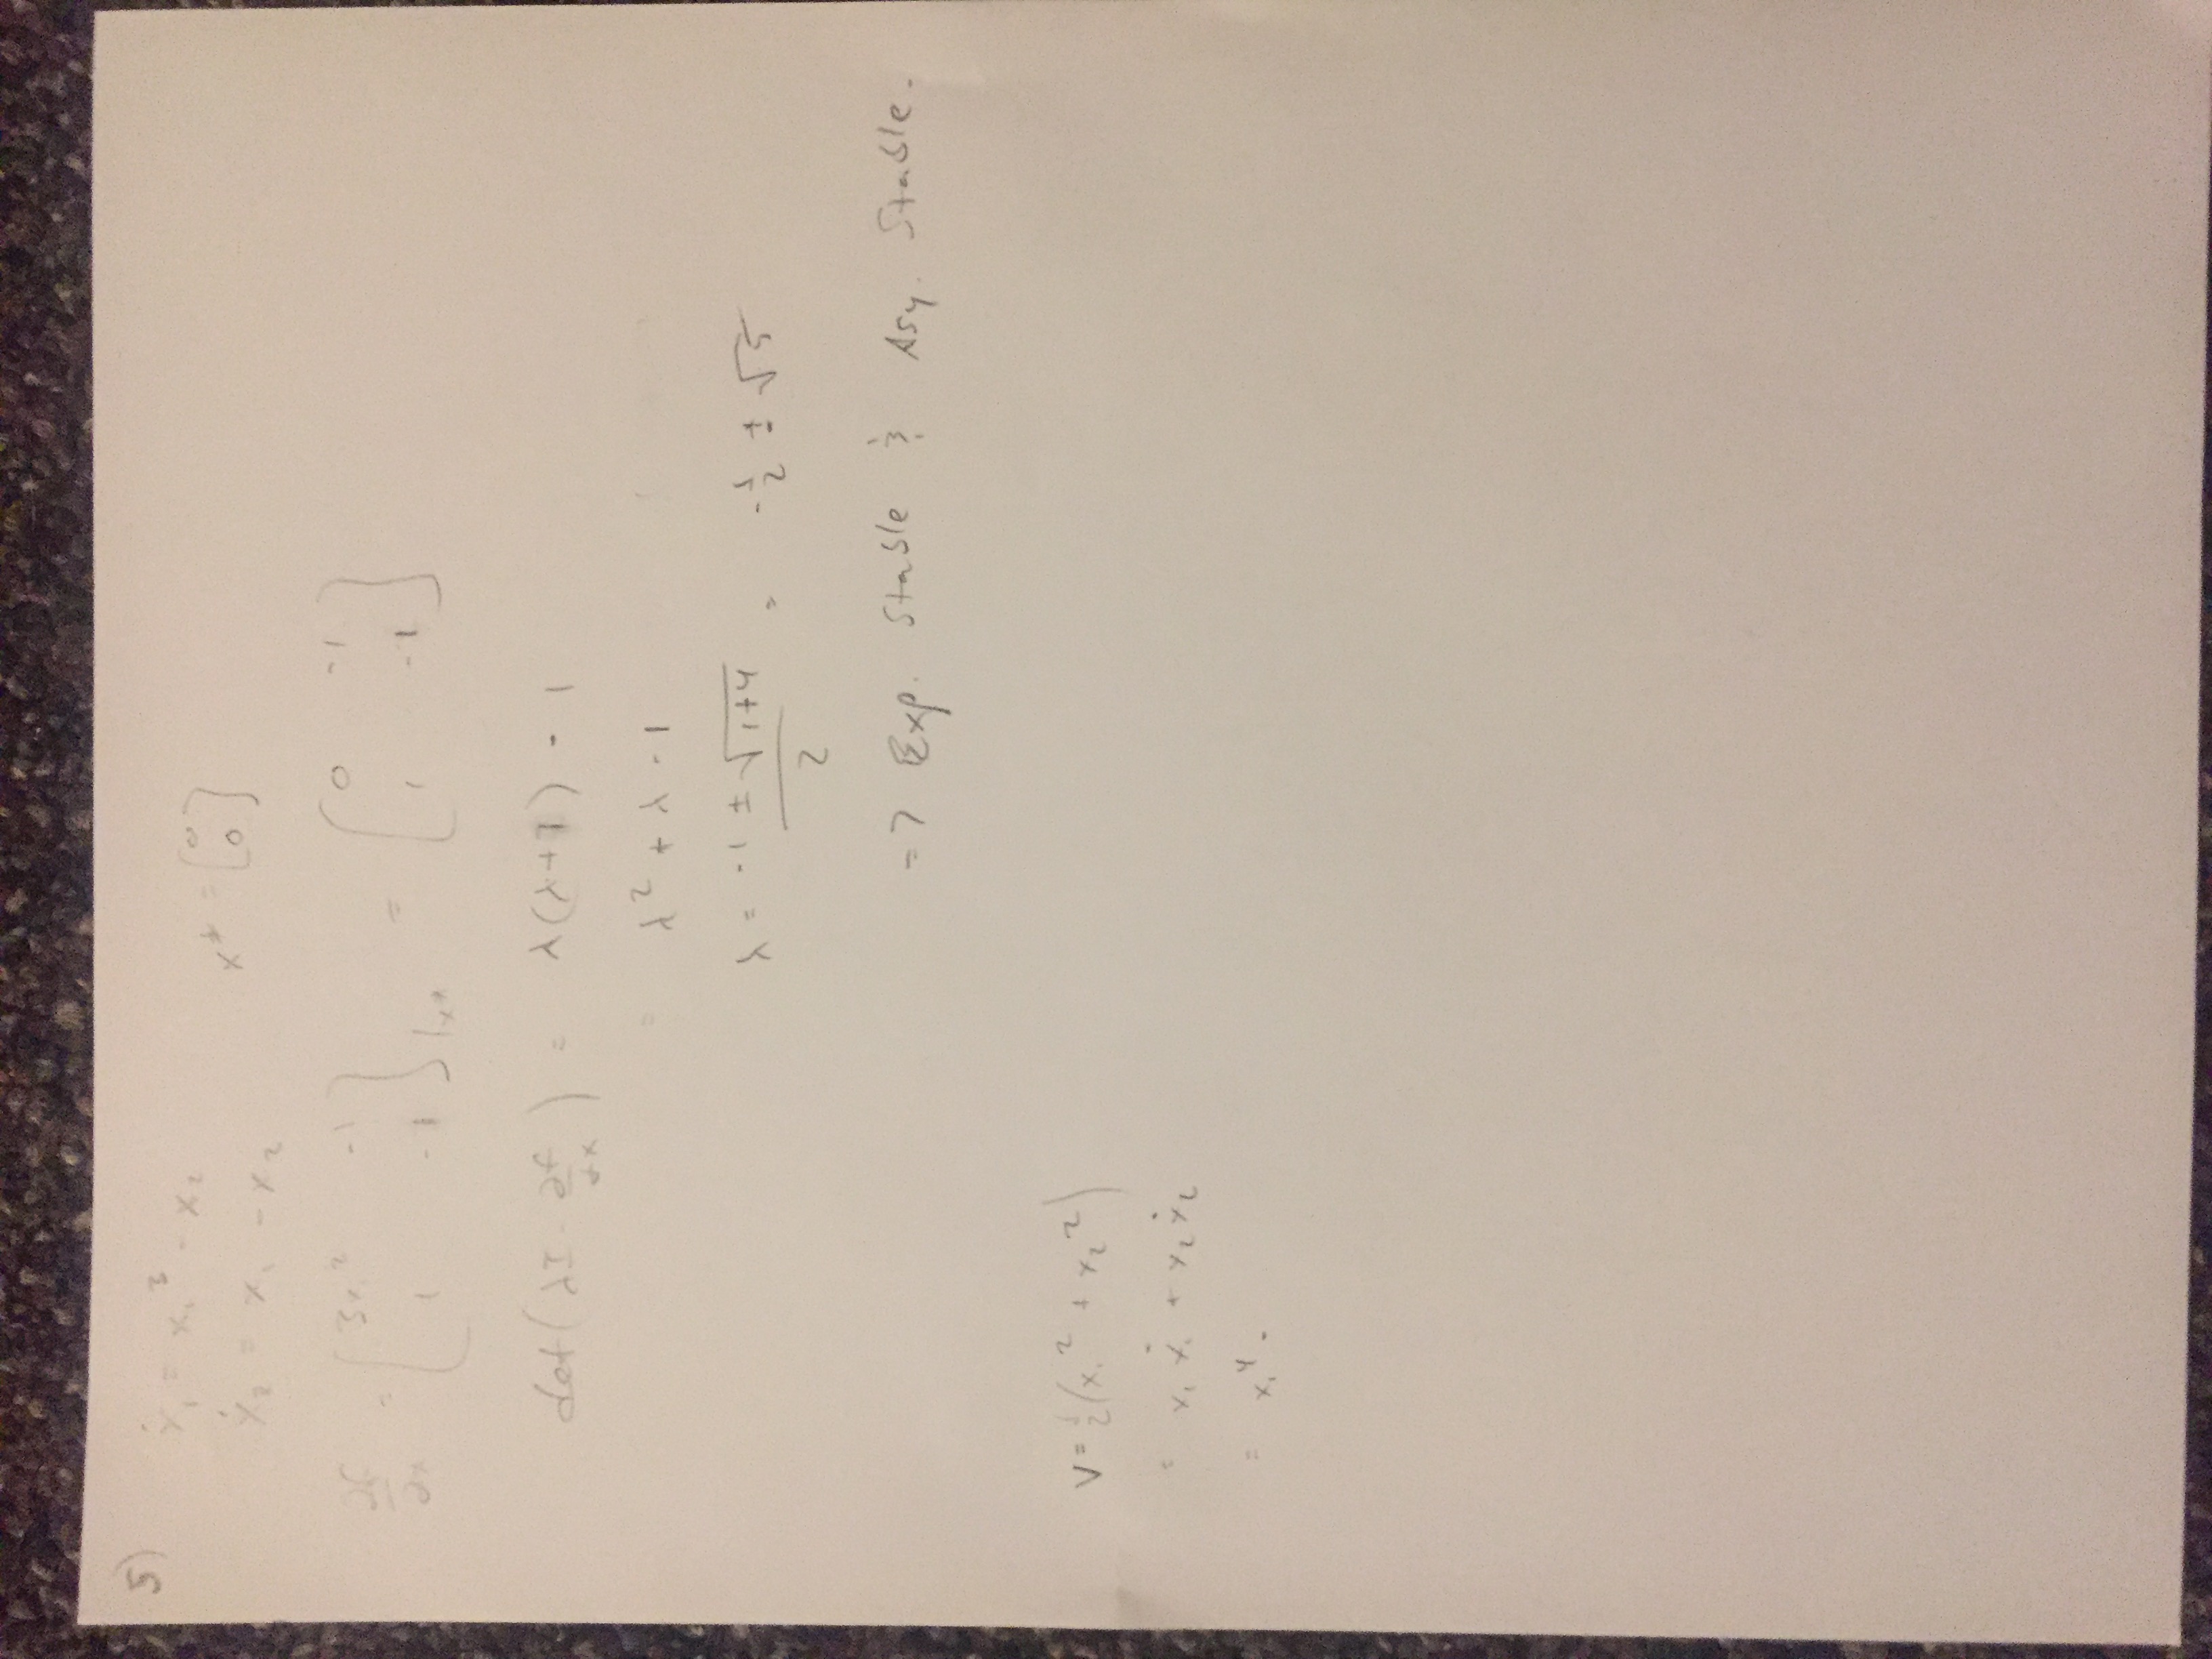 5)
ẋ₁ = x₁³ - x₂
ẋ₂ = x₁ - x₂
x* = [0 0]
∂f/∂x = [3x₁² -1
1 -1]|x* = [0 -1
1 -1]
det(λI - ∂f/∂x) = λ(λ+1) - 1
= λ² + λ - 1
λ = (-1 ± √(1+4))/2 = -1/2 ± √5
=> Exp. Stable & Asy. Stable.
V = 1/2(x₁² + x₂²)
= x₁ẋ₁ + x₂ẋ₂
= x₁⁴ -